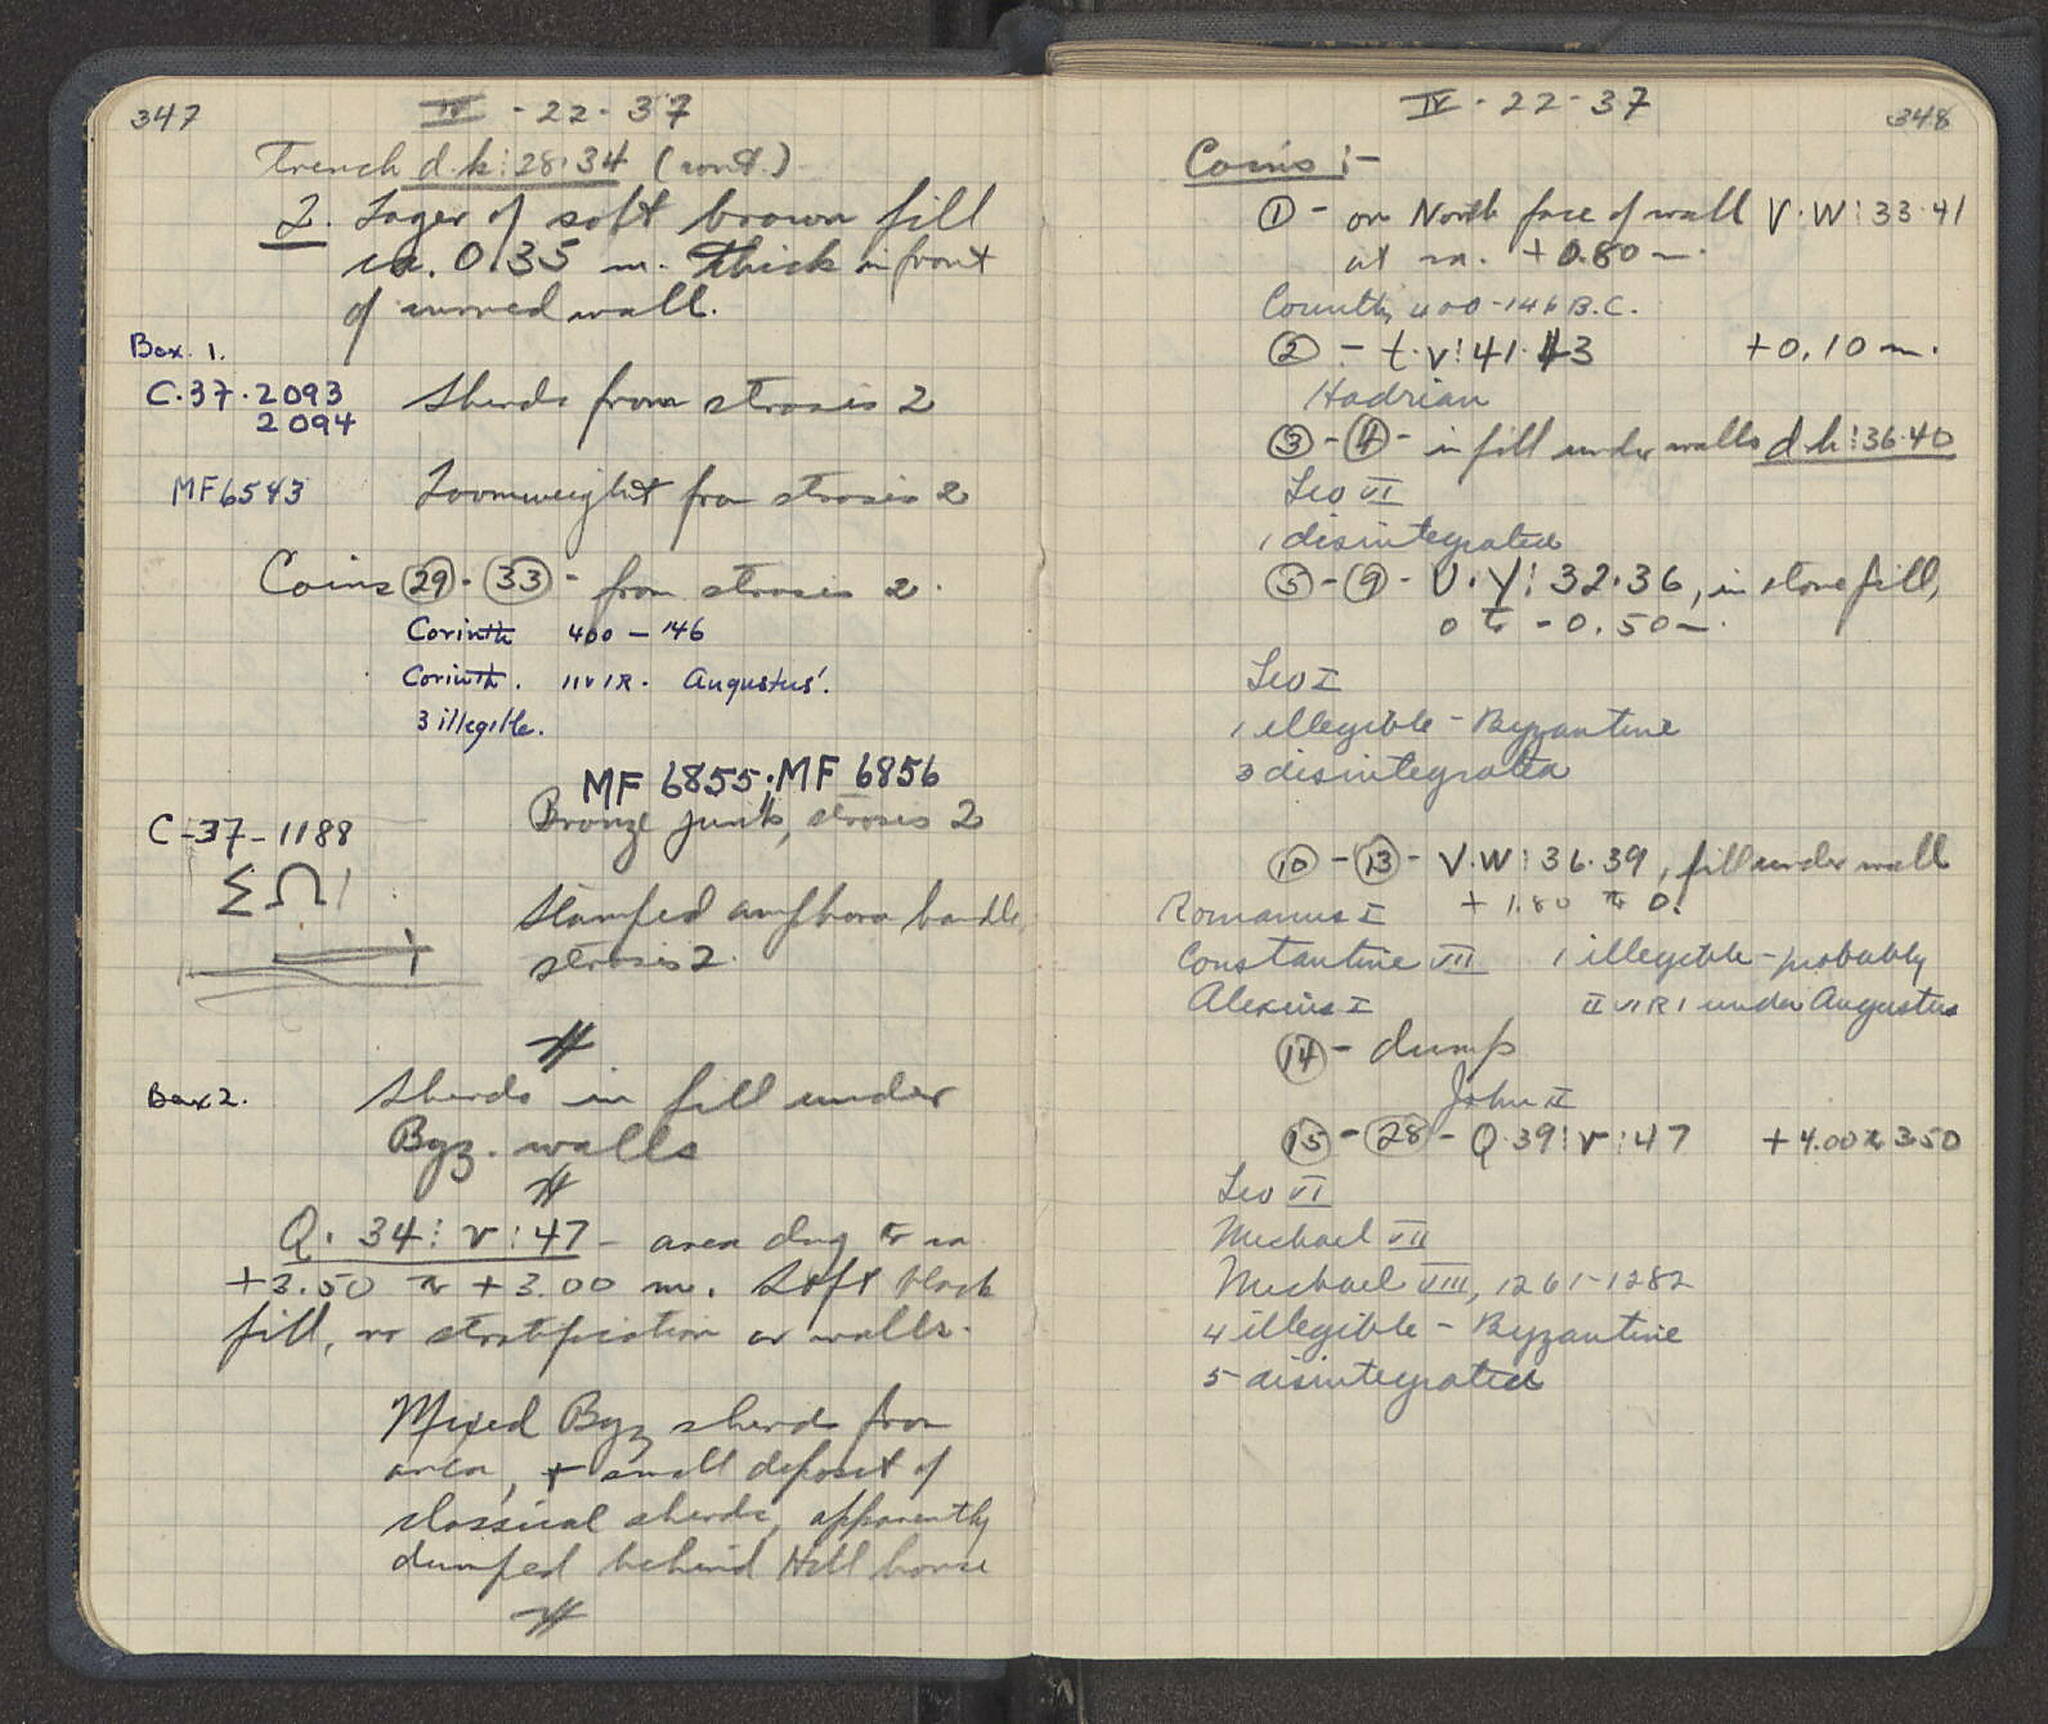 347
IV - 22 - 37
Trench d.k:28.34 (cont.)
2. Layer of soft brown fill
ca. 0.35 m. thick in front
of curved wall.
Box. 1.
C.37.2093
2094
Sherds from strosis 2
MF6543
Loomweight from strosis 2
Coins 29 - 33 - from strosis 2.
Corinth 400 - 146
Corinth. IIVIR. Augustus.
3 illegible.
MF 6855; MF 6856
Bronze junk, strosis 2
C-37-1188
ΣΩ
Stamped amphora handle,
strosis 2.
Box 2.
Sherds in fill under
Byz. walls
Q. 34: v: 47 - area dug to ca
+3.50 to +3.00 m. Soft black
fill, no stratification or walls.
Mixed Byz sherds from
area, + small deposit of
classical sherds, apparently
dumped behind Hill house
IV - 22 - 37
348
Coins :-
1 - on North face of wall V.W:33.41
at ca. +0.80 m.
Corinth, 400-146 B.C.
2 - t.v:41.43 +0.10 m.
Hadrian
3 - 4 - in fill under walls d.k:36.40
Leo VI
1 disintegrated
5 - 9 - U.Y:32.36, in stone fill,
0 to -0.50 m.
Leo I
1 illegible - Byzantine
3 disintegrated
10 - 13 - V.W:36.39, fill under wall
+1.80 to 0.
Romanus I
Constantine VII 1 illegible - probably
Alexius I II VIRI under Augustus
14 - dump
John II
15 - 28 - Q.39:v:47 +4.00 to 3.50
Leo VI
Michael VII
Michael VIII, 1261-1282
4 illegible - Byzantine
5 disintegrated